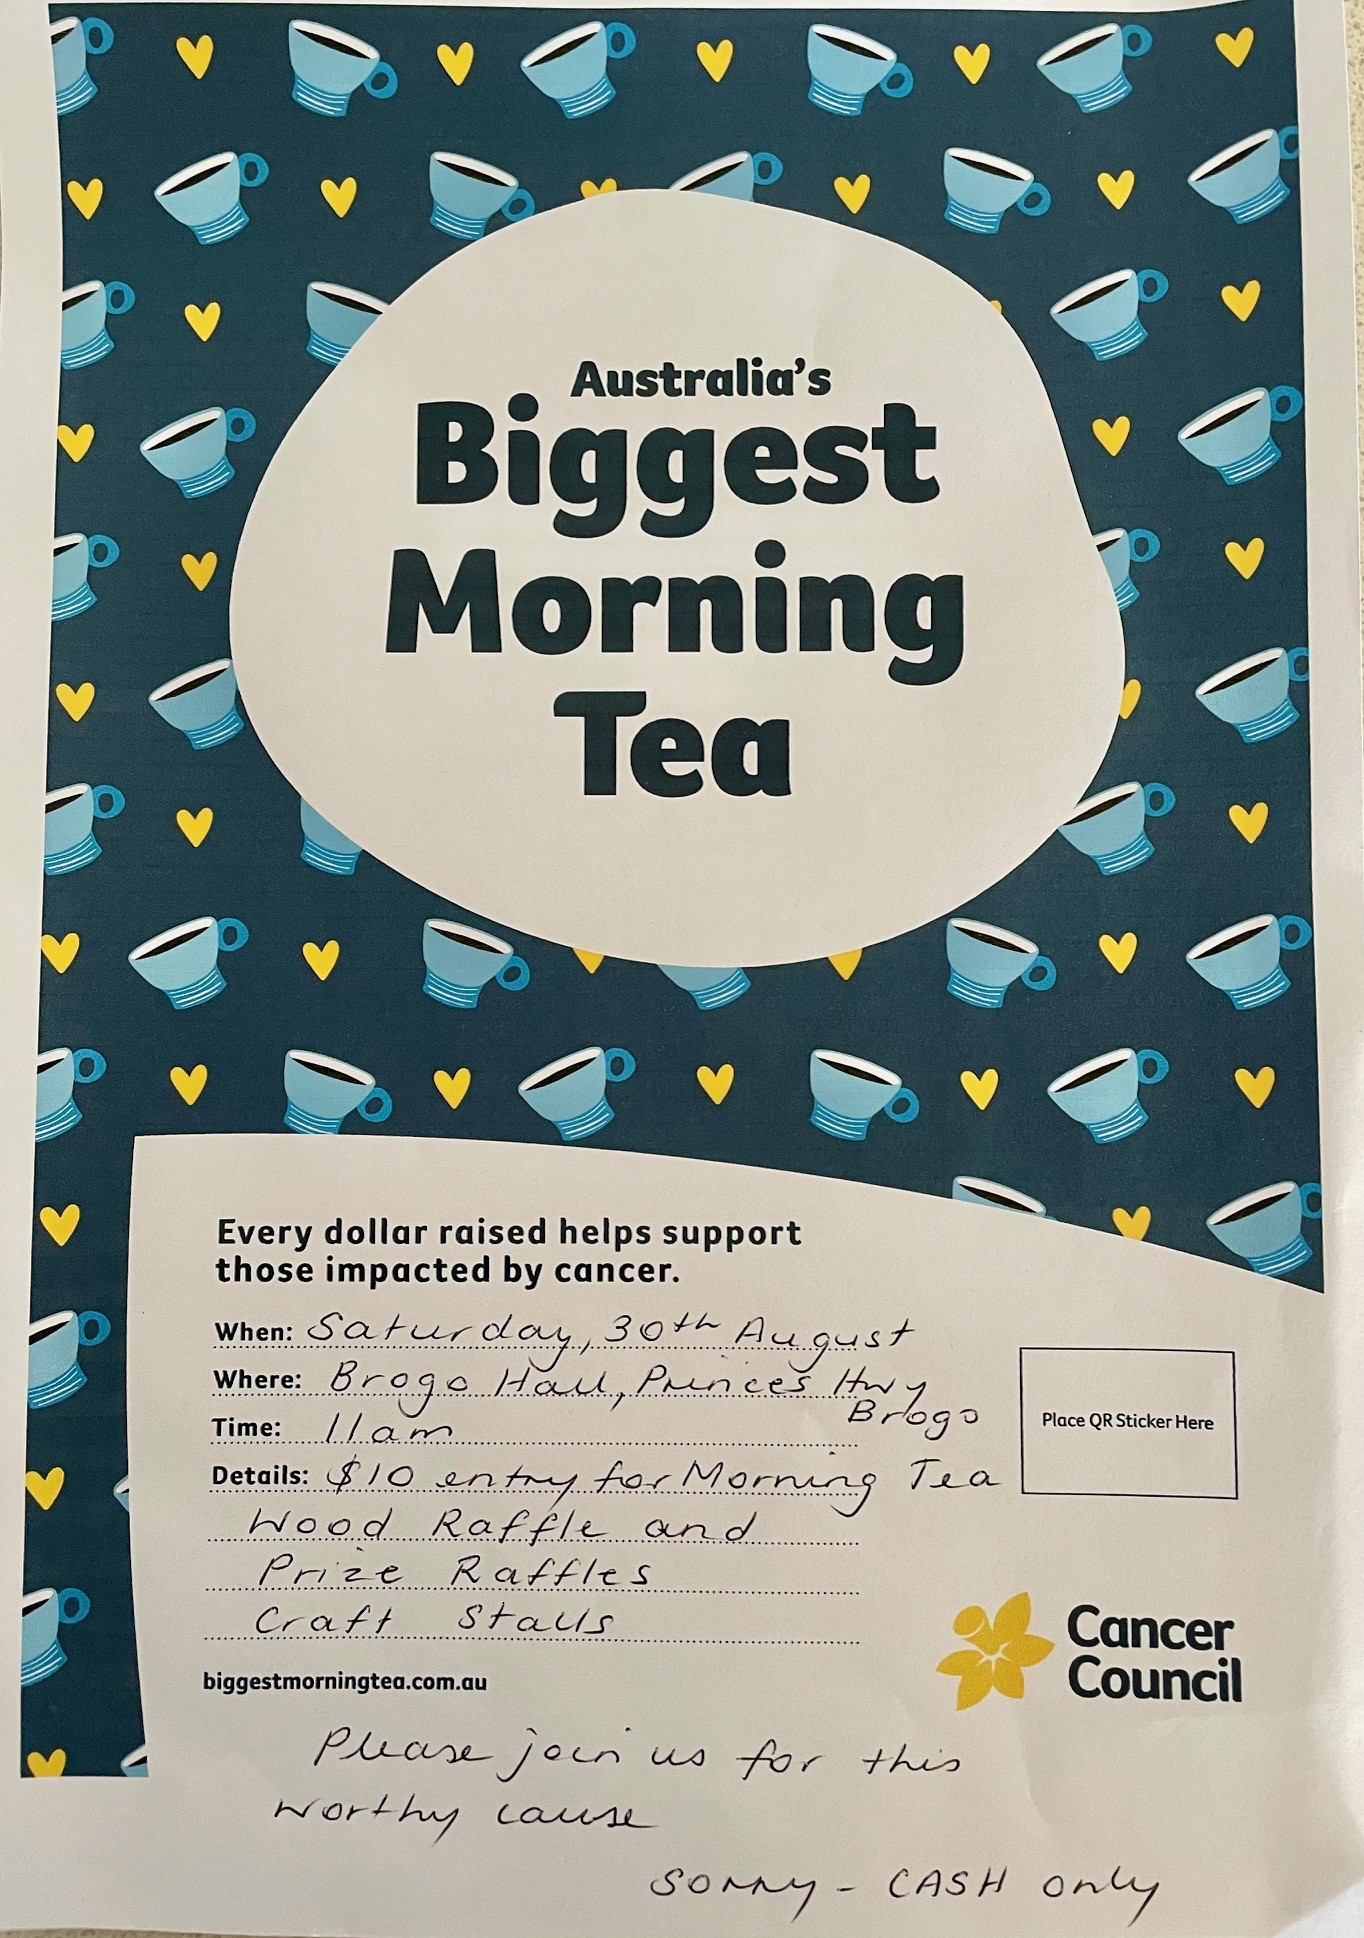 Australia's
Biggest
Morning
Tea
Every dollar raised helps support
those impacted by cancer.
When: Saturday, 30th August
Where: Brogo Hall, Princes Hwy
Brogo
Time: 11am
Details: $10 entry for Morning Tea
Wood Raffle and
Prize Raffles
Craft Stalls
Place QR Sticker Here
biggestmorningtea.com.au
Cancer
Council
Please join us for this
worthy cause
sorry - CASH only